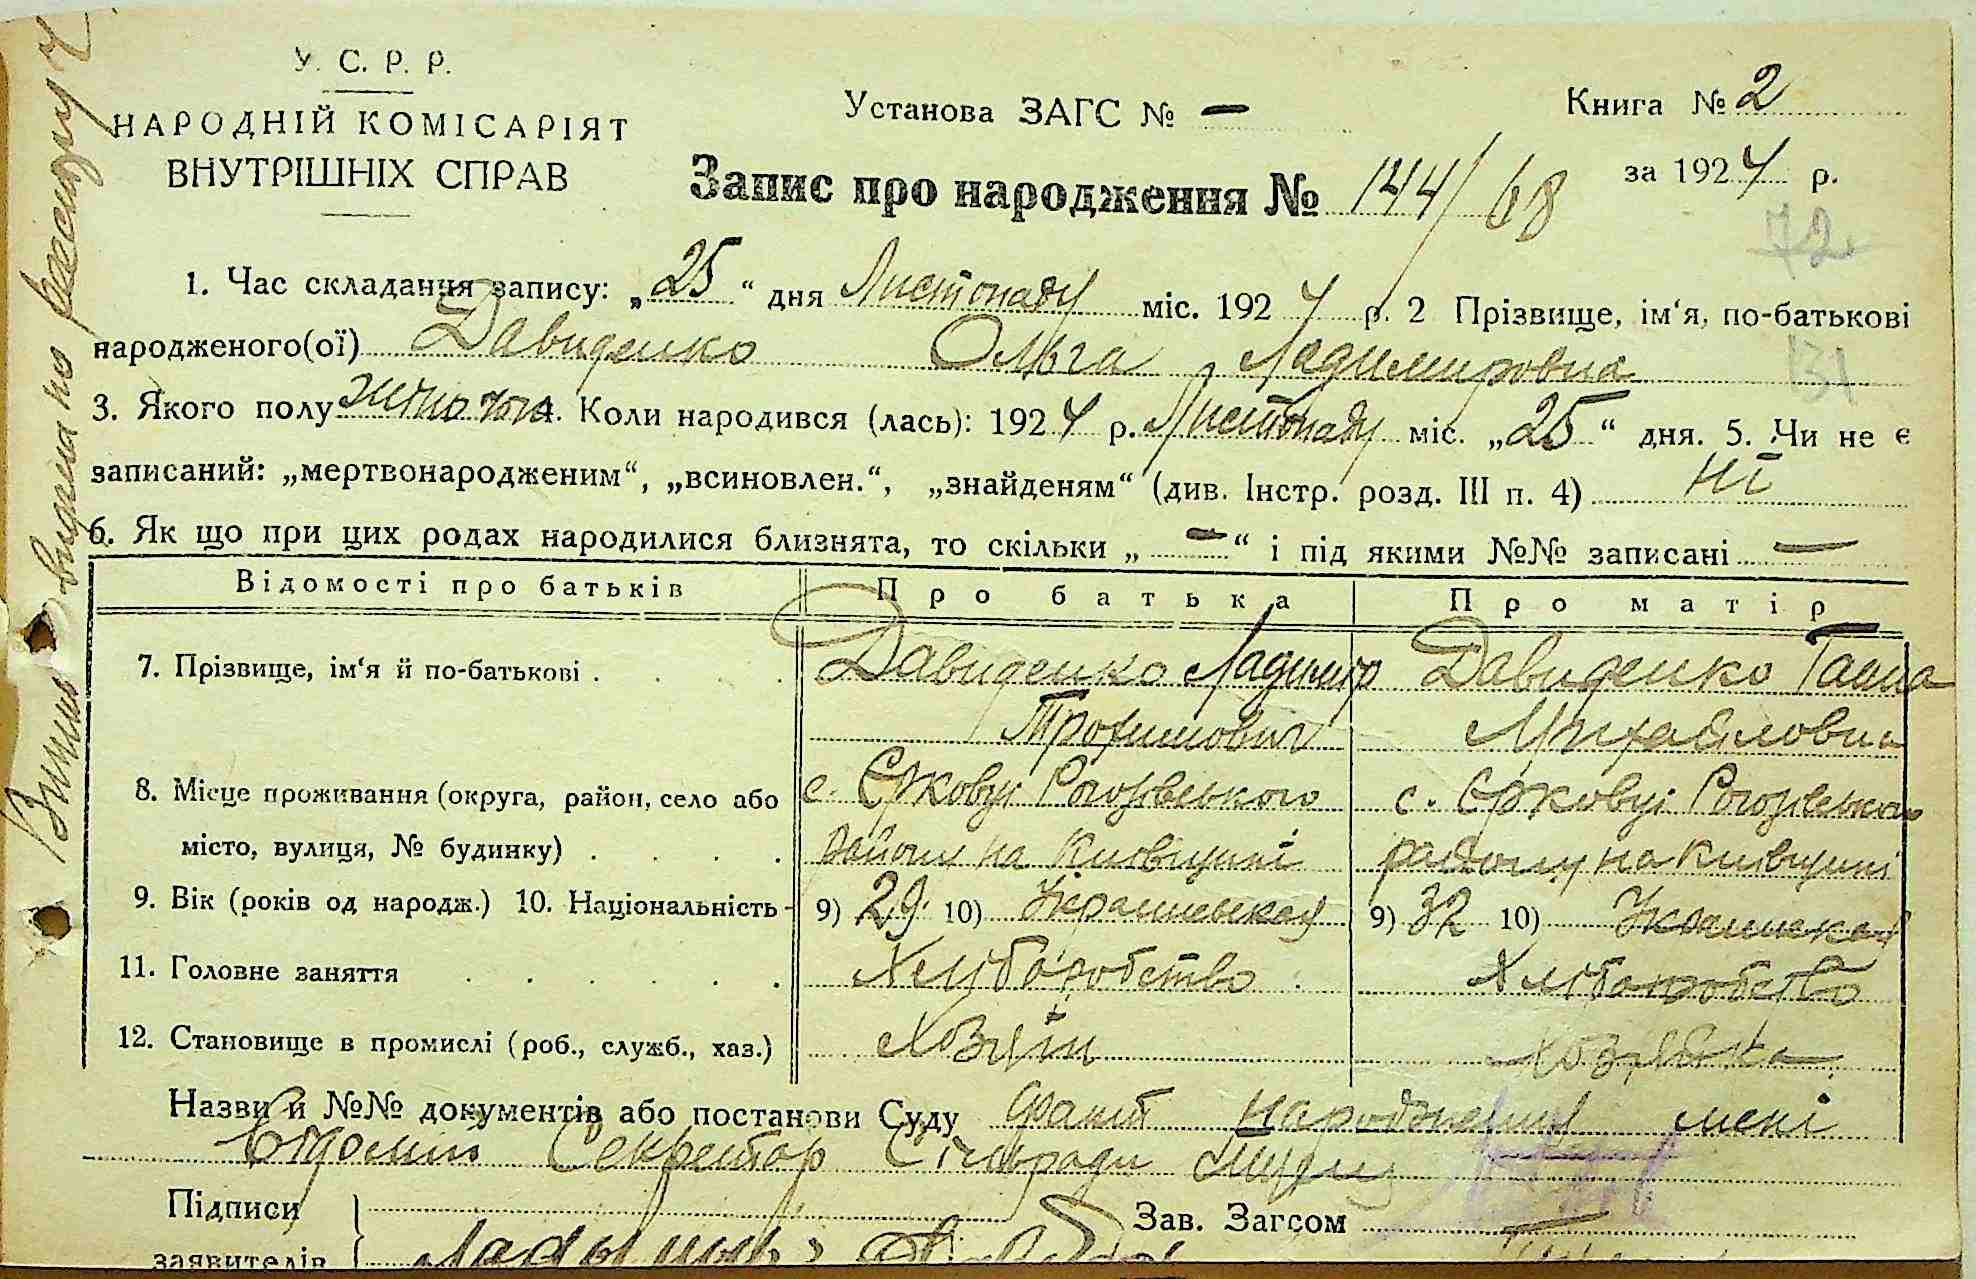 У. С. Р. Р.
НАРОДНІЙ КОМІСАРІЯТ
ВНУТРІШНІХ СПРАВ
Установа ЗАГС № —
Книга № 2
за 1924 р.
Запис про народження № 144/68
72
1. Час складання запису: „25“ дня Листопаду міс. 1924 р. 2 Прізвище, ім‘я, по-батькові
народженого(ої) Давиденко Ольга Ладимировна
131
3. Якого полу жіночого 4. Коли народився (лась): 1924 р. Листопаду міс. „25“ дня. 5. Чи не є
записаний: „мертвонародженим“, „всиновлен.“, „знайденям“ (див. Інстр. розд. III п. 4) ні
6. Як що при цих родах народилися близнята, то скільки „—“ і під якими №№ записані —
Відомості про батьків Про батька Про матір
7. Прізвище, ім‘я й по-батькові . Давиденко Ладимір Давиденко Ганна
Трохимович Михайловна
8. Місце проживання (округа, район, село або с. Єрковці Рогозівського с. Єрковці
місто, вулиця, № будинку) . району на Київщині району на Київщині
9. Вік (років од народж.) 10. Національність - 9) 29. 10) 9) 32 10)
11. Головне заняття Хліборобство Хліборобство
12. Становище в промислі (роб., служб., хаз.) Хозяїн Хозяйка
Назви й №№ документів або постанови Суду Факт народження мені
відомий Секретар Сільради
Підписи
заявителів
Зав. Загсом
Випис видана по